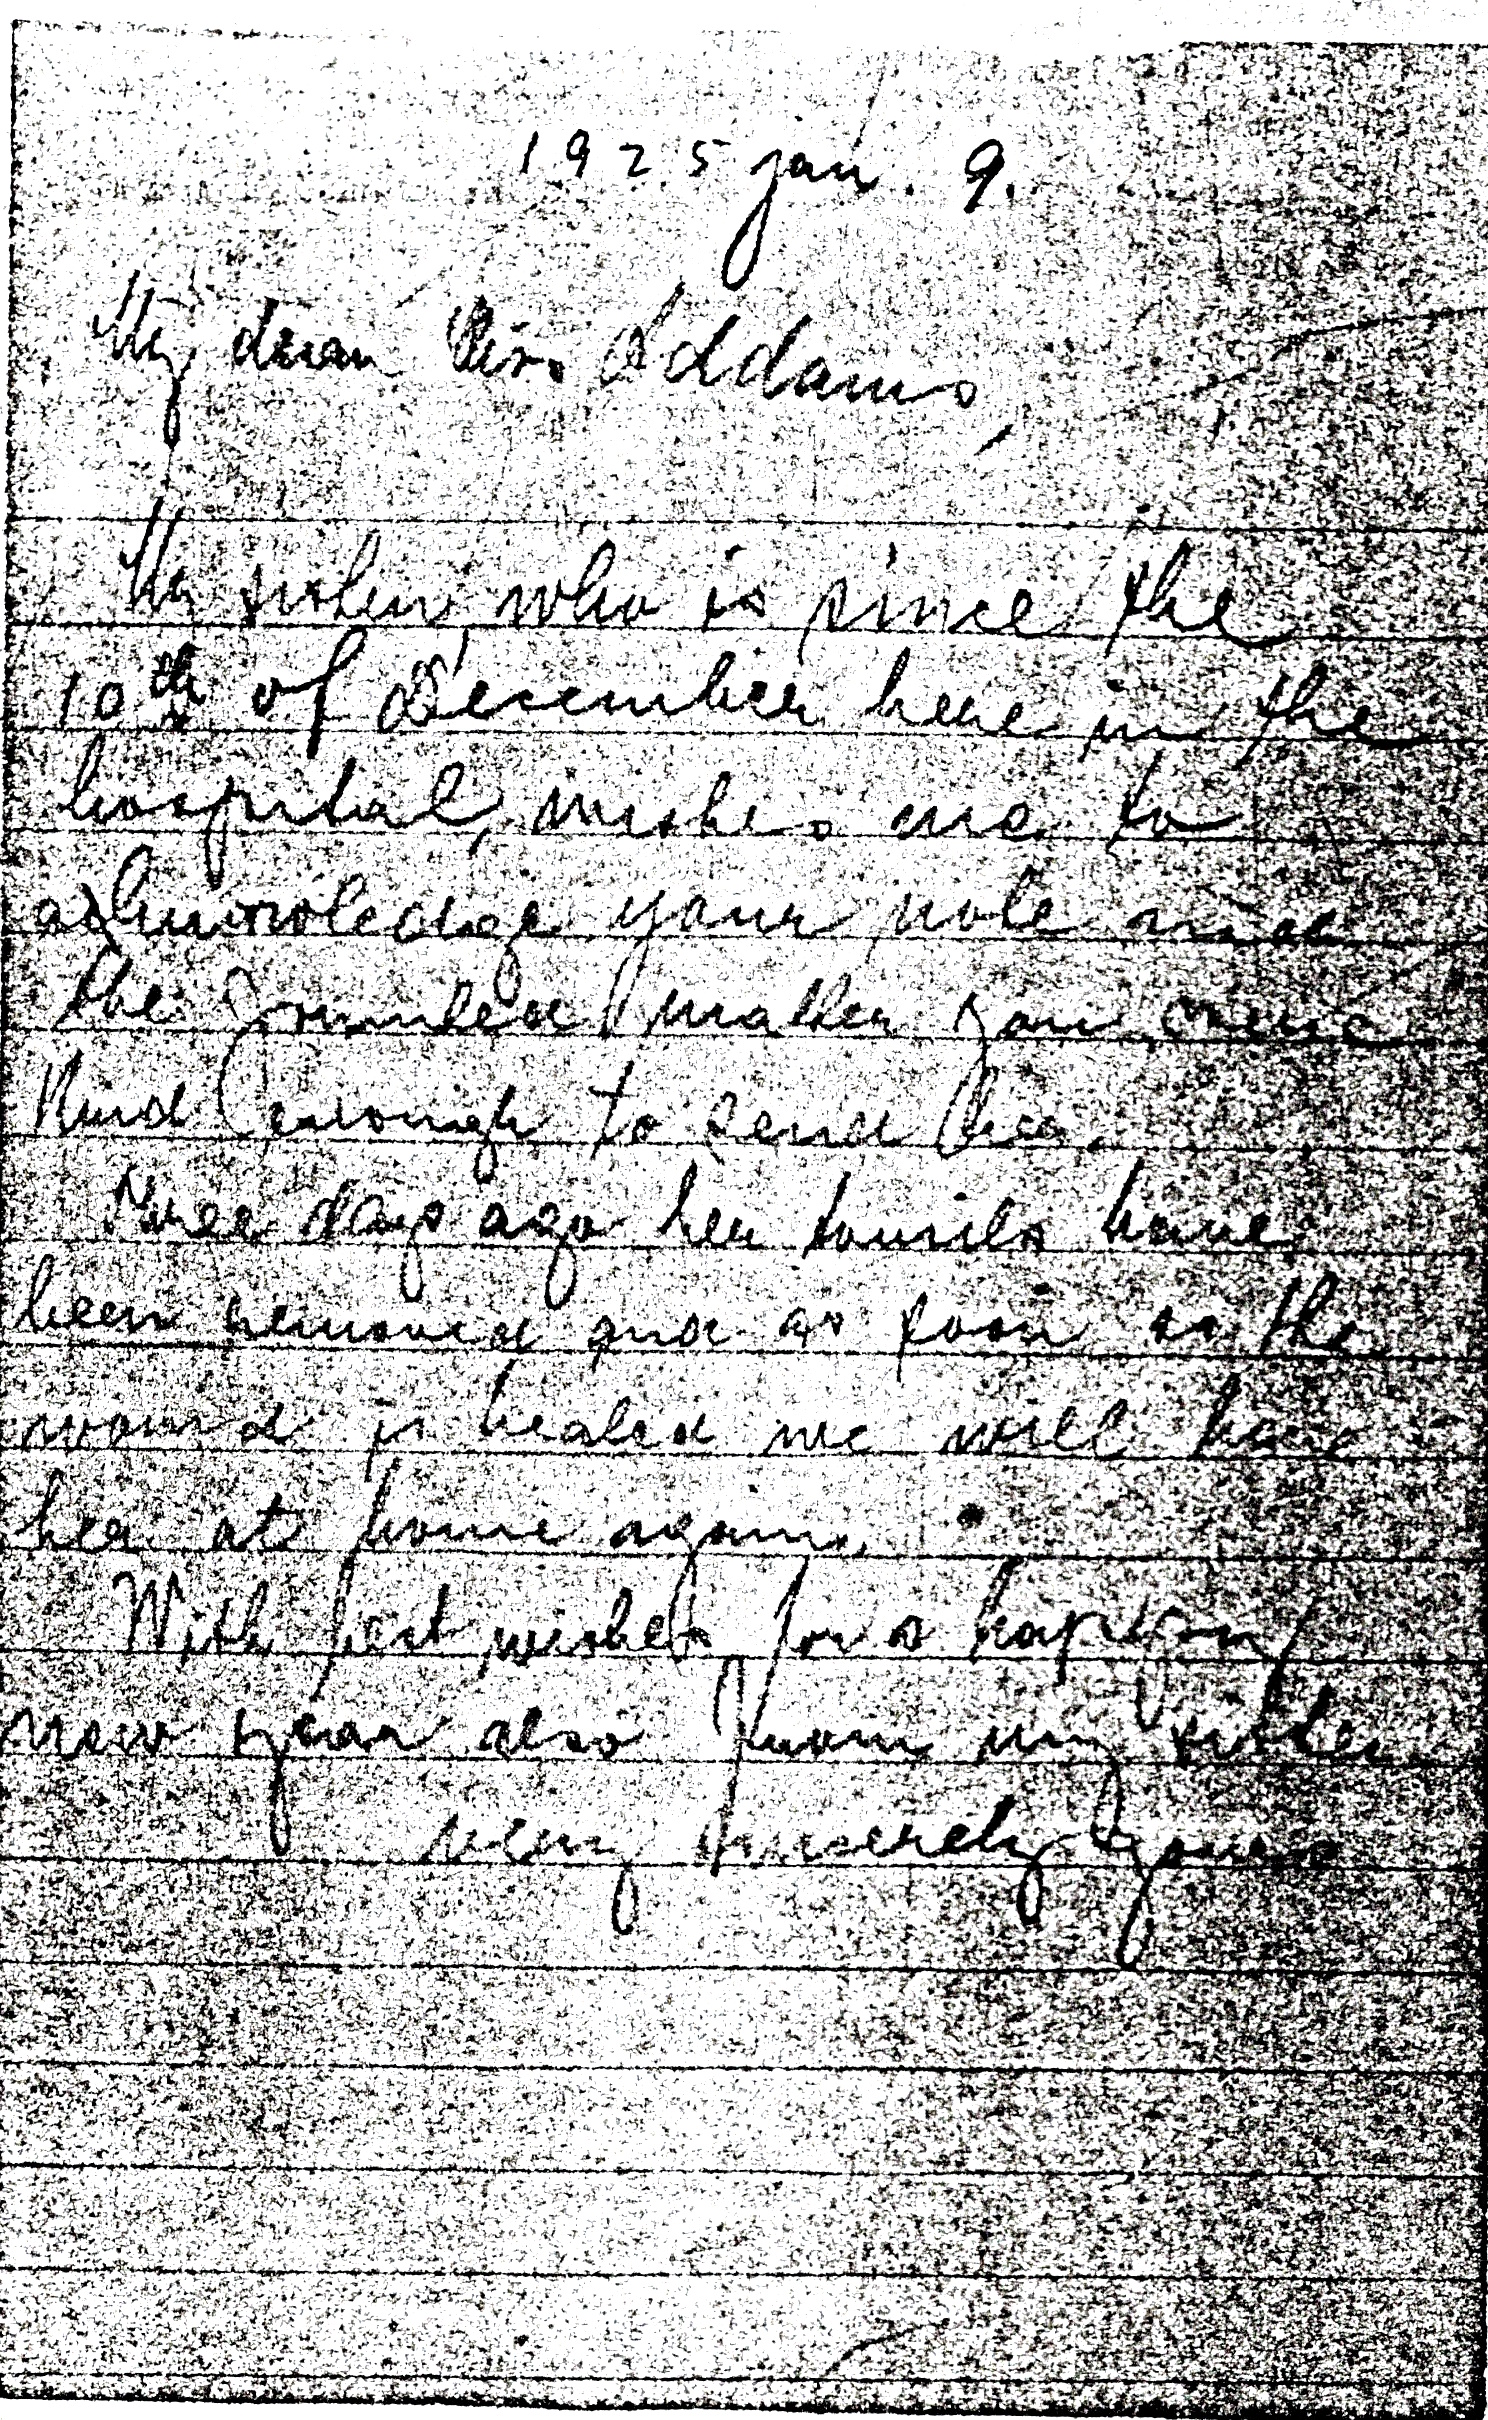 1925 Jan. 9.
My dear Miss Addams,
My sister who is since the
10th of December here in the
hospital, wishes me to
acknowledge your note and
the printed matter you were
kind enough to send her.
Three days ago her tonsils have
been removed and as soon as the
wound is healed we will have
her at home again.
With best wishes for a happy
new year also from my sister
very sincerely yours